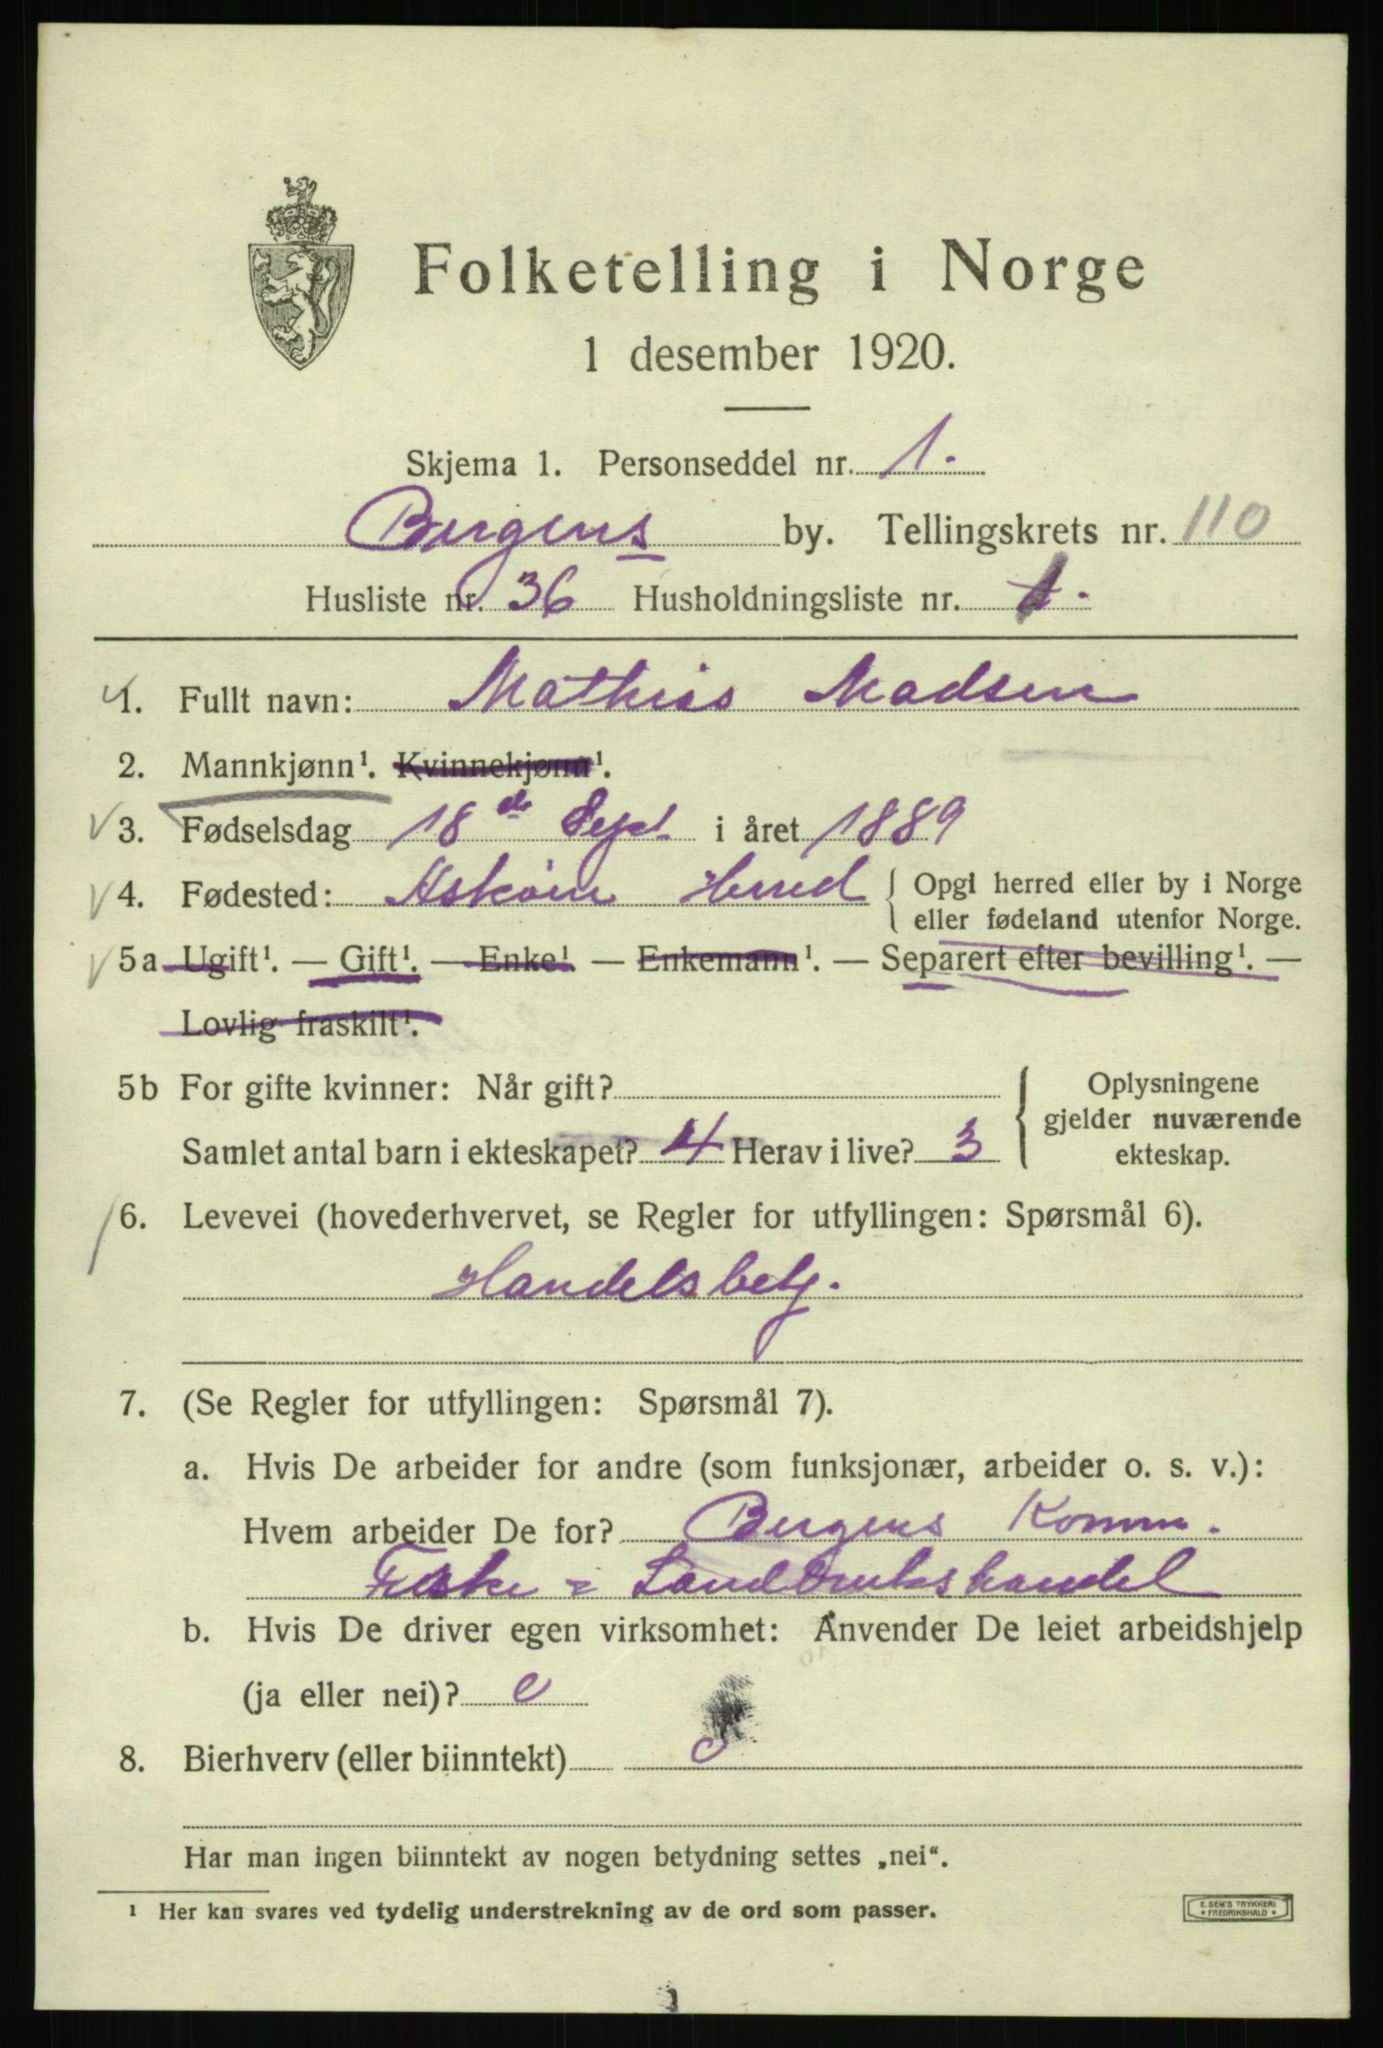 Folketelling i Norge
1 desember 1920.
Skjema 1. Personseddel nr. 1.
Bergens by. Tellingskrets nr. 110
Husliste nr. 36 Husholdningsliste nr. 1.
1. Fullt navn: Mathias Madsen
2. Mannkjønn¹. Kvinnekjønn¹.
3. Fødselsdag 18de Sept i året 1889
4. Fødested: Askøen Herred { Opgi herred eller by i Norge
eller fødeland utenfor Norge.
5a Ugift¹. — Gift¹. — Enke¹. — Enkemann¹. — Separert efter bevilling¹. —
Lovlig fraskilt¹.
5b For gifte kvinner: Når gift?
Samlet antal barn i ekteskapet? 4 Herav i live? 3
{ Oplysningene
gjelder nuværende
ekteskap.
6. Levevei (hovederhvervet, se Regler for utfyllingen: Spørsmål 6).
Handelsbetj.
7. (Se Regler for utfyllingen: Spørsmål 7).
a. Hvis De arbeider for andre (som funksjonær, arbeider o. s. v.):
Hvem arbeider De for? Bergens Komm.
Fiske = Landbrukshandel
b. Hvis De driver egen virksomhet: Anvender De leiet arbeidshjelp
(ja eller nei)?
8. Bierhverv (eller biinntekt)
Har man ingen biinntekt av nogen betydning settes „nei“.
¹ Her kan svares ved tydelig understrekning av de ord som passer.
E. SEM'S TRYKKERI
* FREDRIKSHALD *